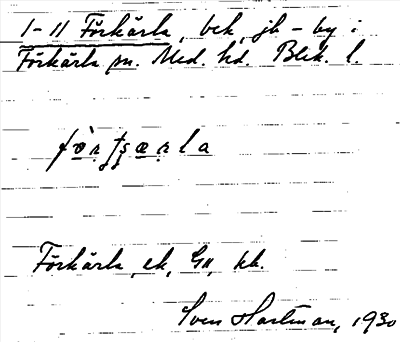 1-11 Förkärla, bek, jb - by :
Förkärla sn. Med. hd. Blek. l.
Förkärla, ek, GII, kk.
Sven Hartman, 1930